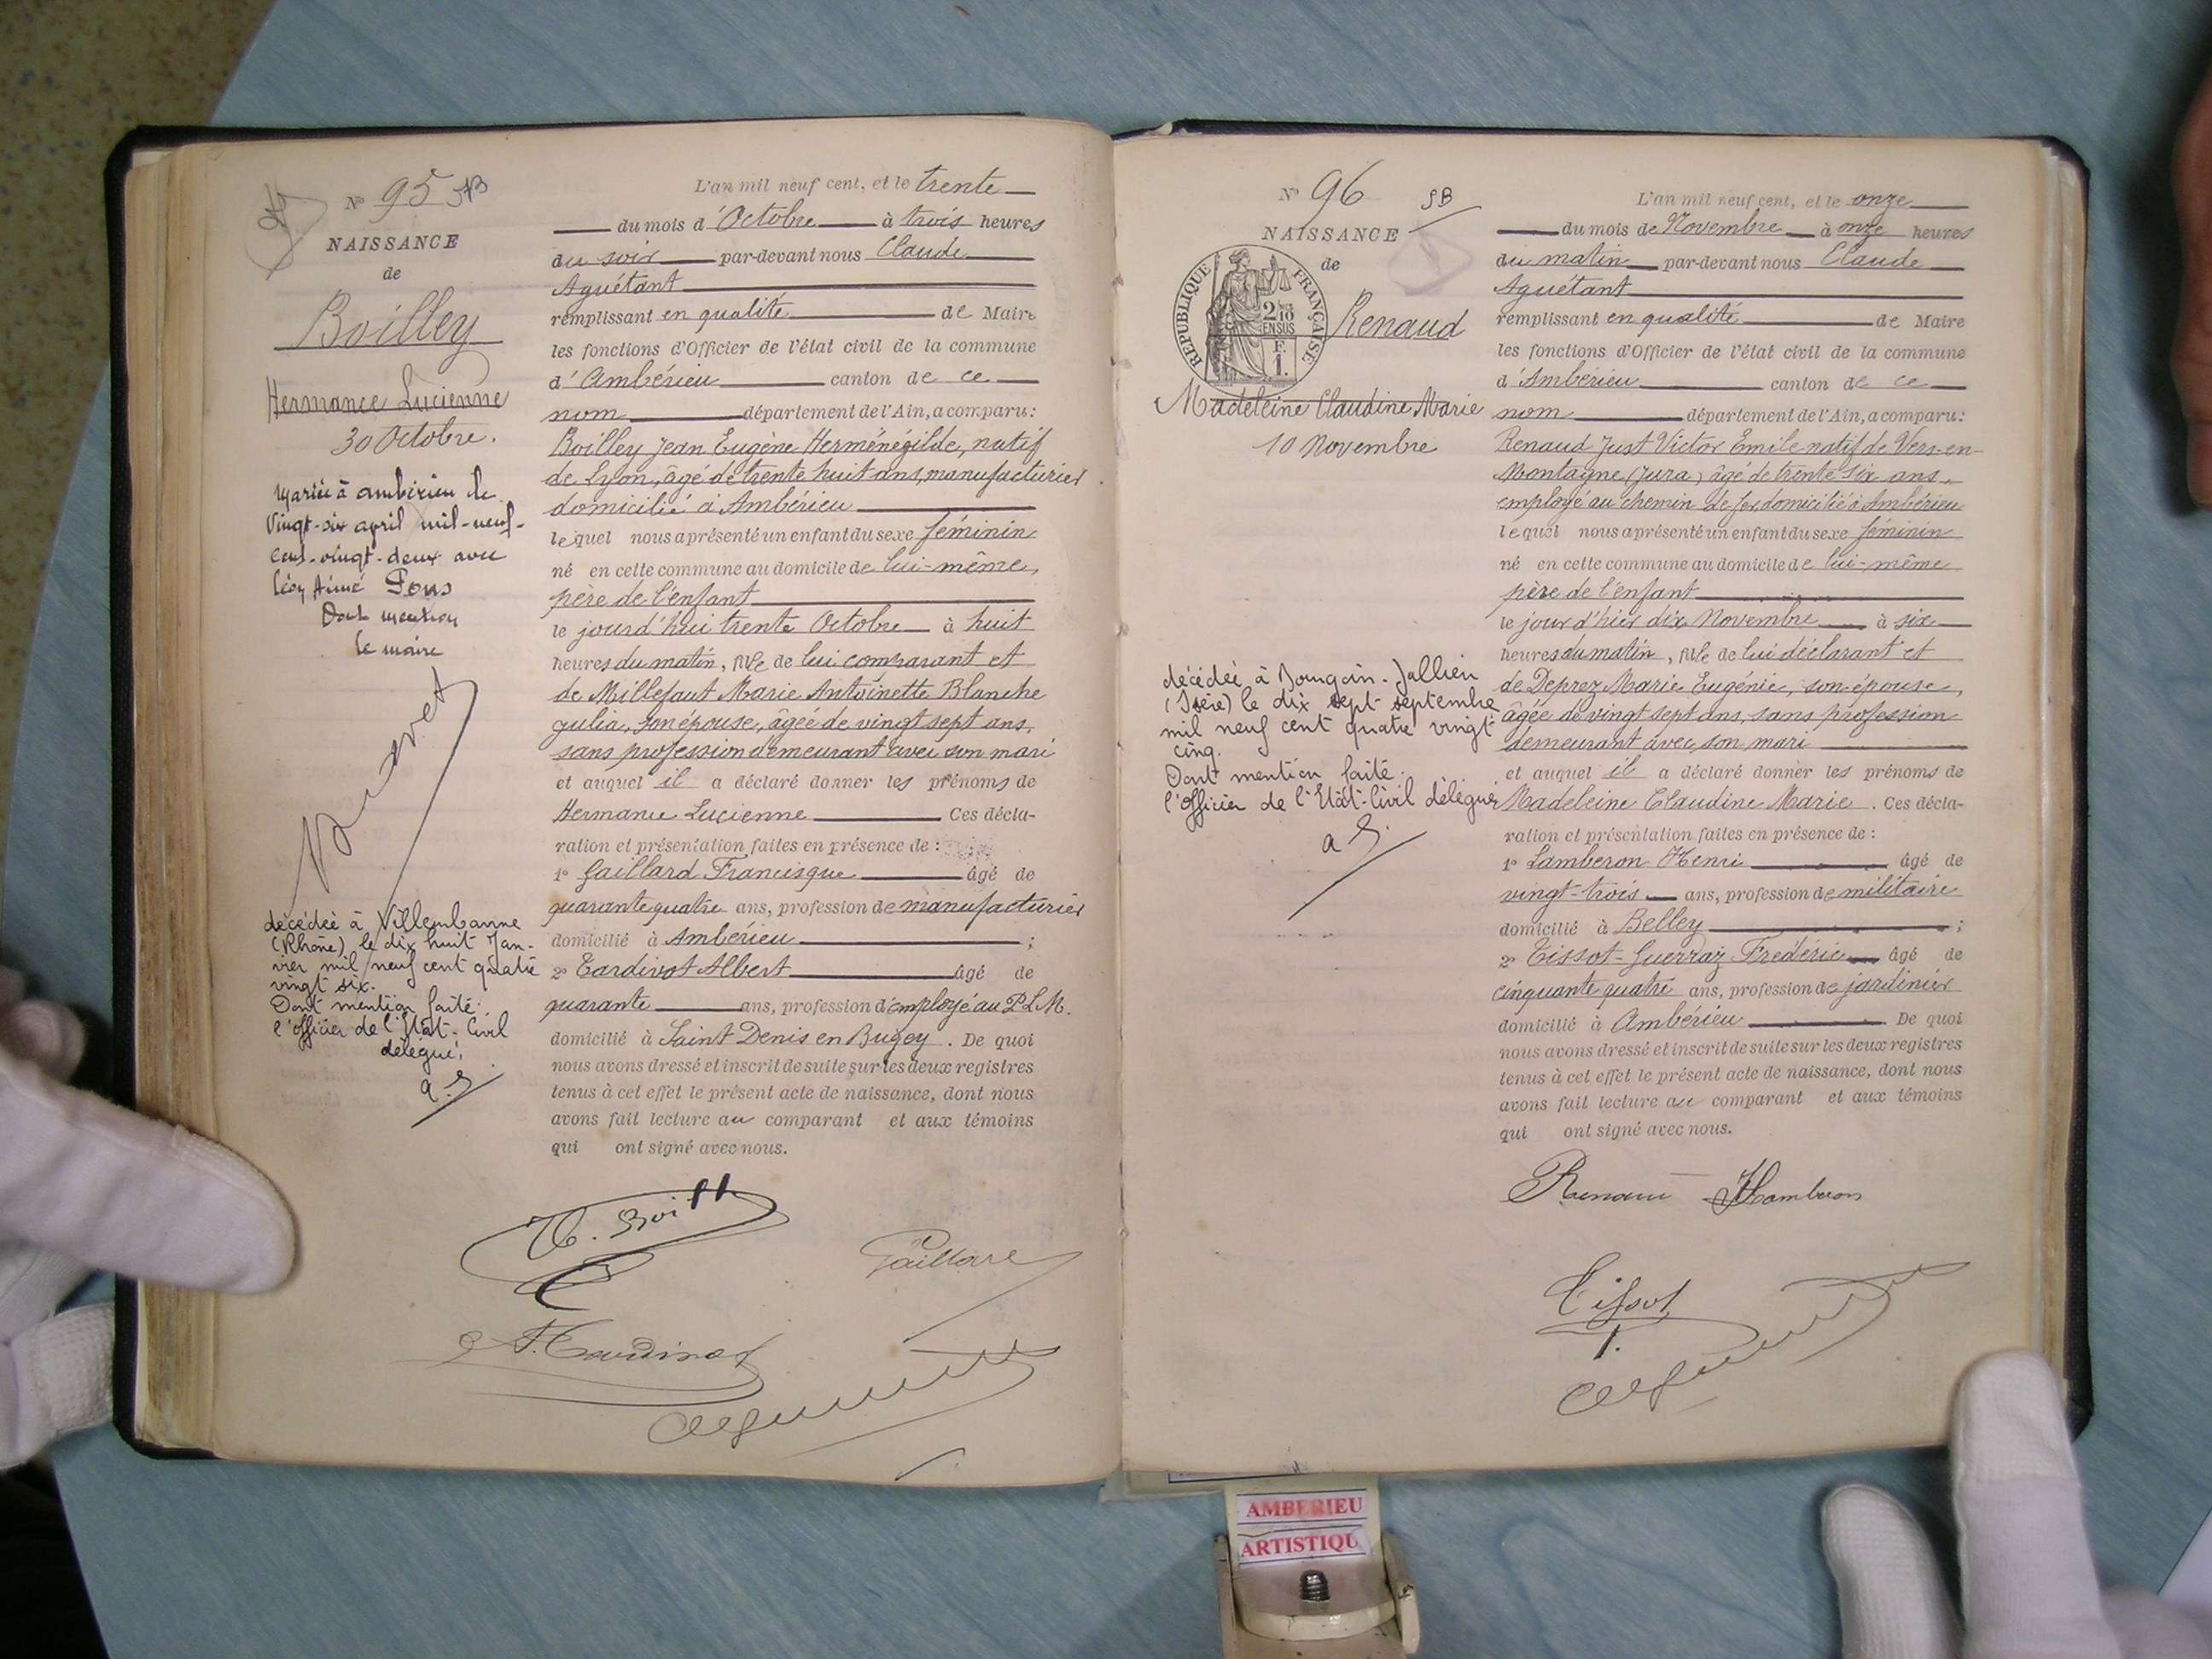 N° 95
NAISSANCE
de
Boilley
Hermance Lucienne
30 Octobre.
Mariée à Ambérieu le
vingt-six avril mil-neuf-
cent-vingt-deux avec
Léon Aimé Pons
Dont mention
le maire
décédée à Villeurbanne
(Rhône) le dix huit Jan-
vier mil neuf cent quatre
vingt six.
Dont mention faite.
l'officier de l'Etat-Civil
délégué,
L'an mil neuf cent, et le trente
du mois d'Octobre à trois heures
du soir par-devant nous Claude
Aguétant
remplissant en qualité de Maire
les fonctions d'Officier de l'état civil de la commune
d'Ambérieu canton de ce
nom département de l'Ain, a comparu:
Boilley Jean Eugène Herménégilde, natif
de Lyon, âgé de trente huit ans, manufacturier
domicilié à Ambérieu
lequel nous a présenté un enfant du sexe féminin
né en cette commune au domicile de lui-même,
père de l'enfant
le jourd'hui trente Octobre à huit
heures du matin, fille de lui comparant et
de Millefaut Marie Antoinette Blanche
Julia, son épouse, âgée de vingt sept ans,
sans profession demeurant avec son mari
et auquel il a déclaré donner les prénoms de
Hermance Lucienne Ces décla-
ration et présentation faites en présence de :
1° Gaillard Francisque âgé de
quarante quatre ans, profession de manufacturier
domicilié à Ambérieu ;
2° Tardivot Albert âgé de
quarante ans, profession d'employé au P.L.M.
domicilié à Saint Denis en Bugey. De quoi
nous avons dressé et inscrit de suite sur les deux registres
tenus à cet effet le présent acte de naissance, dont nous
avons fait lecture au comparant et aux témoins
qui ont signé avec nous.
Gaillard
N° 96 SB
NAISSANCE
de
REPUBLIQUE FRANÇAISE
2/10
EN SUS
F.
1.
Renaud
Madeleine Claudine Marie
10 Novembre
décédée à Bourgoin-Jallieu
(Isère) le dix sept septembre
mil neuf cent quatre vingt
cinq.
Dont mention faite.
l'Officier de l'Etat-Civil délégué
L'an mil neuf cent, et le onze
du mois de Novembre à onze heures
du matin par-devant nous Claude
Aguétant
remplissant en qualité de Maire
les fonctions d'Officier de l'état civil de la commune
d'Ambérieu canton de ce
nom département de l'Ain, a comparu:
Renaud Just Victor Emile natif de Vers-en-
Montagne (Jura) âgé de trente six ans,
employé au chemin de fer, domicilié à Ambérieu
lequel nous a présenté un enfant du sexe féminin
né en cette commune au domicile de lui-même
père de l'enfant
le jour d'hier dix Novembre à six
heures du matin, fille de lui déclarant et
de Deprez Marie Eugénie, son épouse,
âgée de vingt sept ans, sans profession
demeurant avec son mari
et auquel il a déclaré donner les prénoms de
Madeleine Claudine Marie. Ces décla-
ration et présentation faites en présence de :
1° Lamberon Henri âgé de
vingt-trois ans, profession de militaire
domicilié à Belley ;
2° Tissot-Guerraz Frédéric âgé de
cinquante quatre ans, profession de jardinier
domicilié à Ambérieu. De quoi
nous avons dressé et inscrit de suite sur les deux registres
tenus à cet effet le présent acte de naissance, dont nous
avons fait lecture au comparant et aux témoins
qui ont signé avec nous.
Renaud HLamberon
Tissot
AMBERIEU
ARTISTIQU